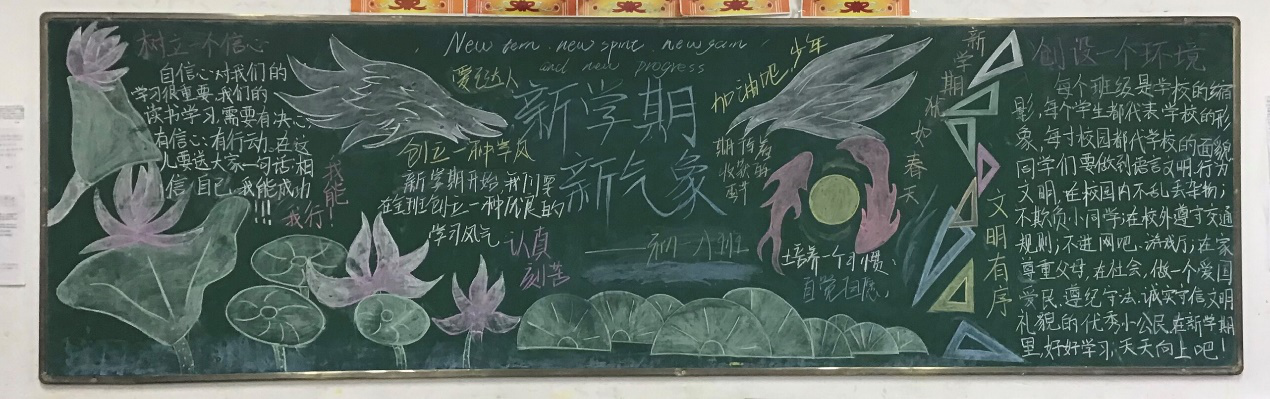 树立一个信心
自信心对我们的
学习很重要.我们的
读书学习,需要有决心,
有信心:有行动.在这
儿要送大家一句话:相
信自己,我能成功
!!!
我能
我行!
New term. new spirit. new gain
and new progress
爱到达人
创立一种学风
新学期开始,我们要
在全班创立一种优良的
学习风气
认真
刻苦
新学期
新气象
加油吧,少年
期
收获的
季节
培养一个习惯:
自觉自愿
新学期
犹如春天
文明有序
创设一个环境
每个班级是学校的缩
影,每个学生都代表学校的形
象,每寸校园都代学校的面貌
同学们要做到语言文明,行为
文明,在校园内不乱丢杂物;
不欺负小同学;在校外遵守交通
规则;不进网吧.游戏厅;在家
尊重父母,在社会,做一个爱国
爱民.遵纪守法.诚实守信.文明
礼貌的优秀小公民.在新学期
里,好好学习,天天向上吧!